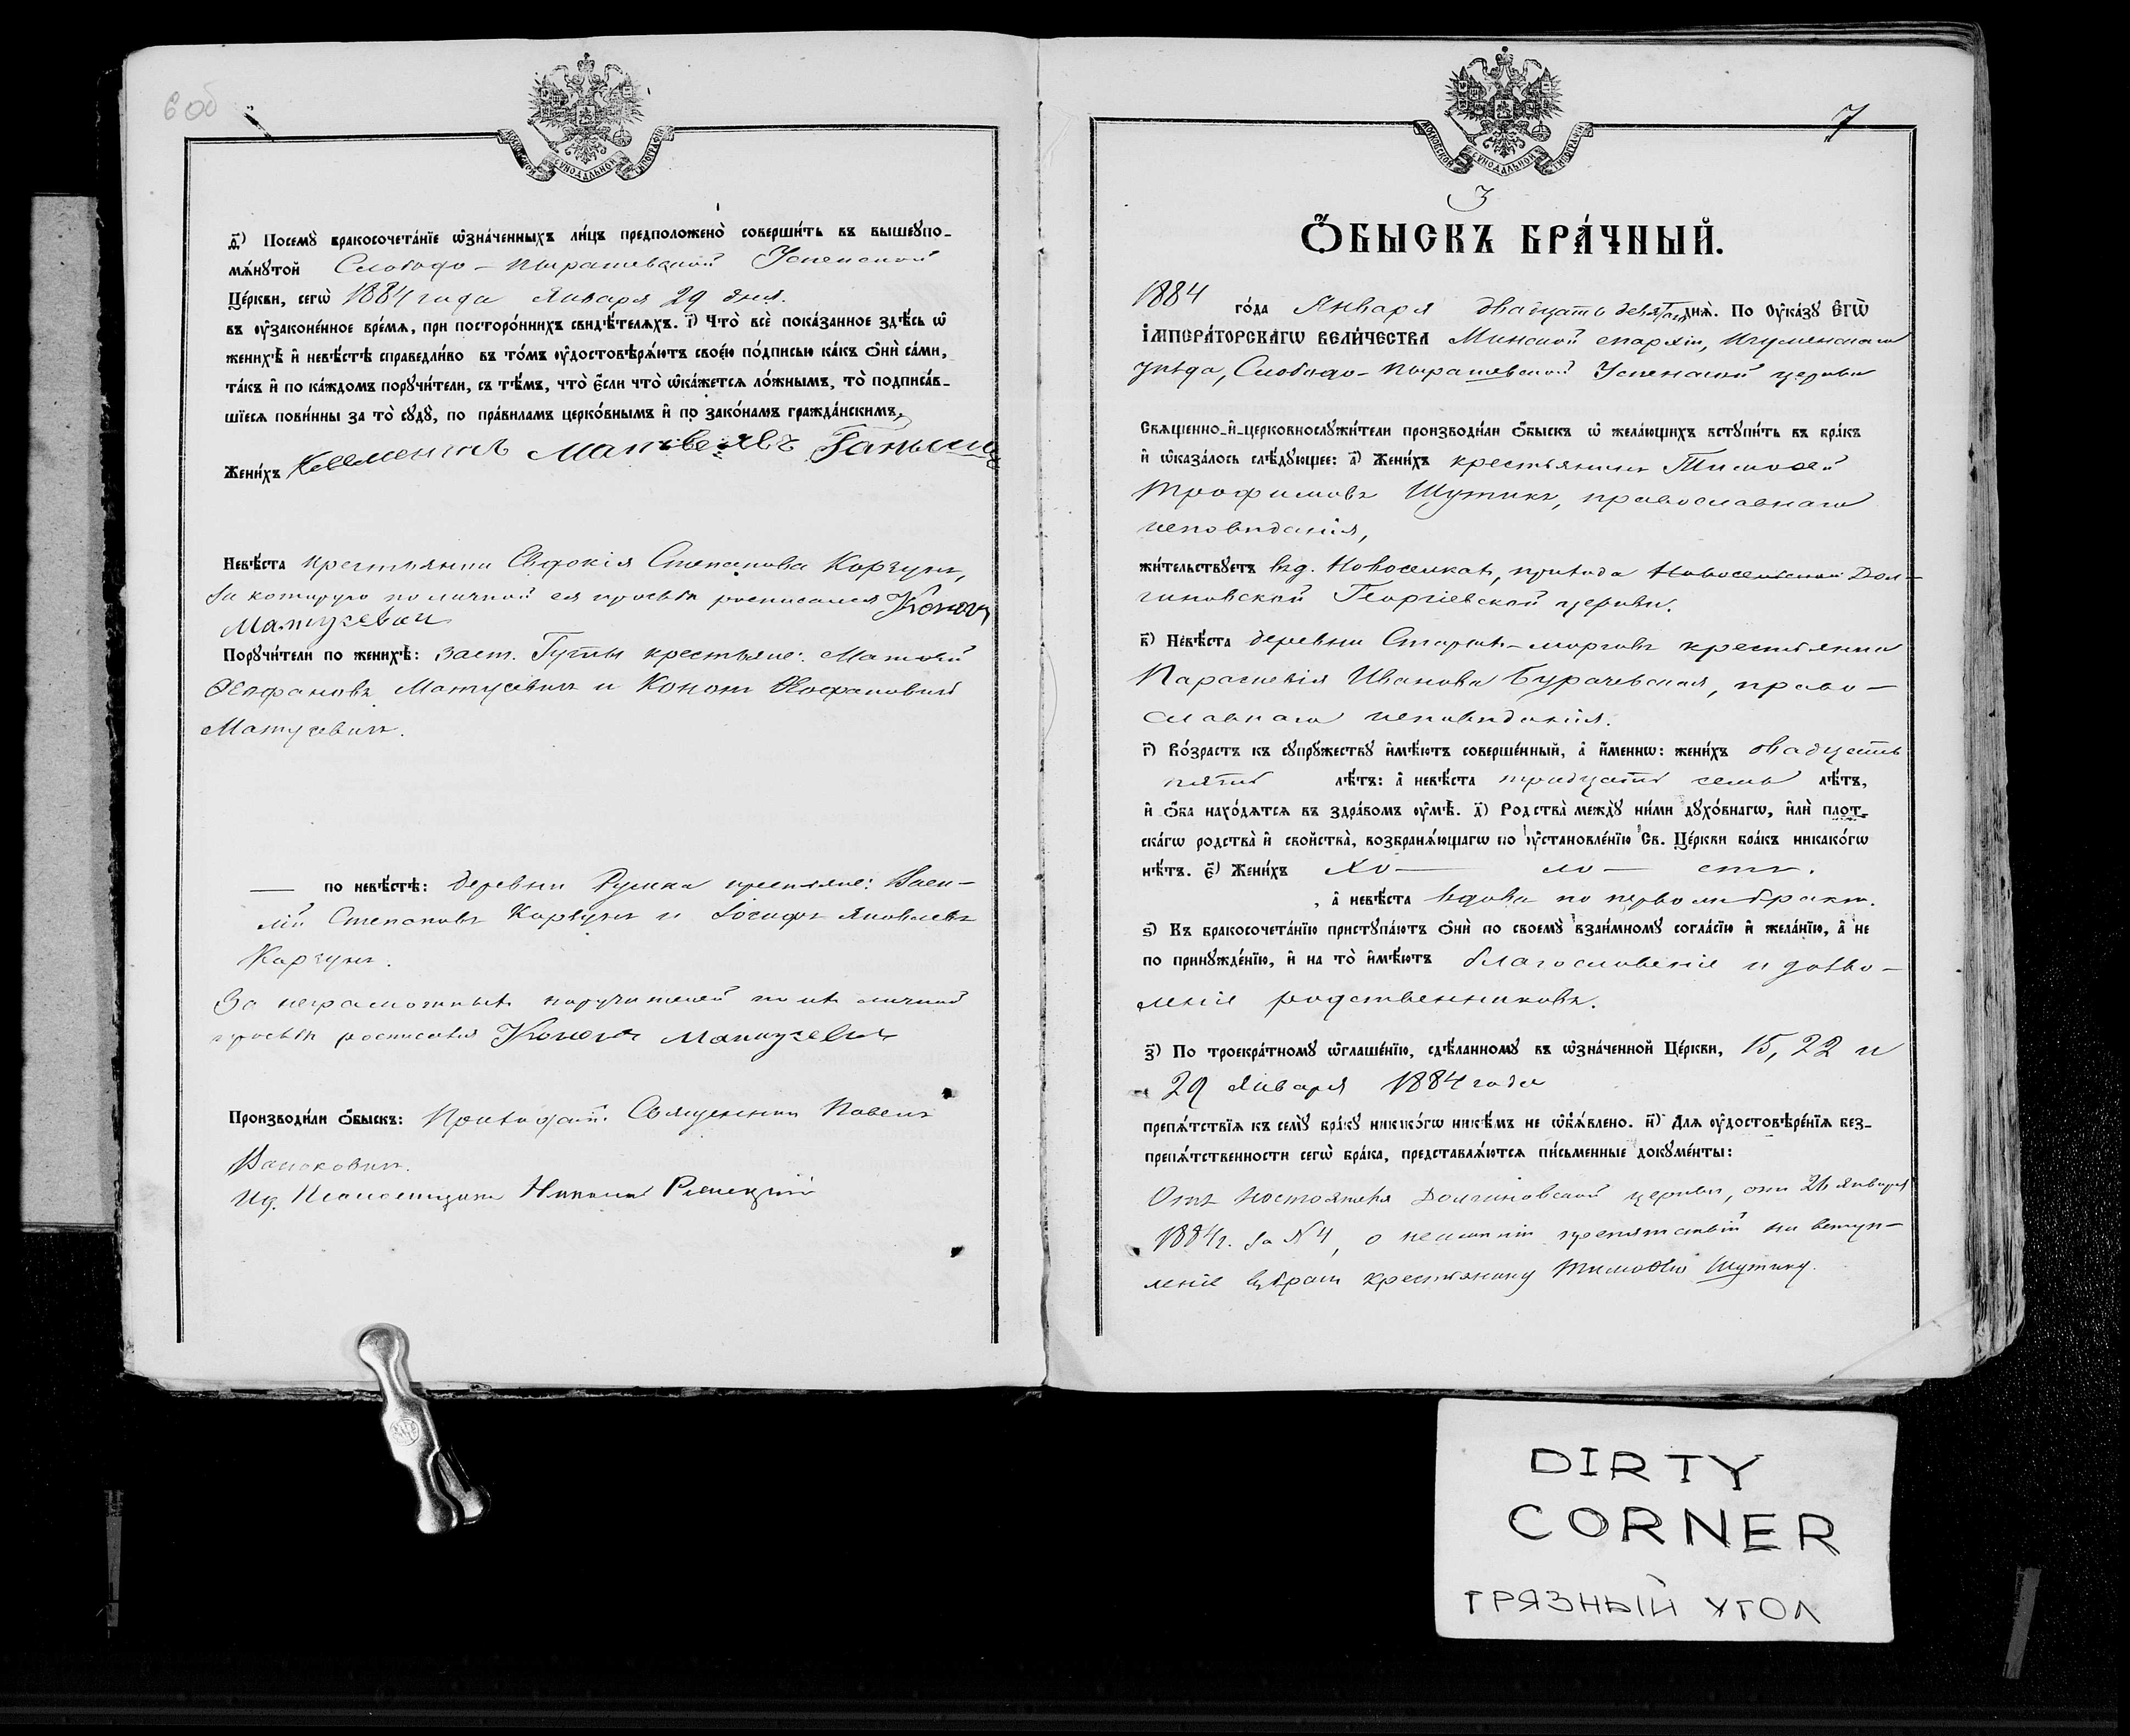 6 об
МОСКОВСКОЙ СѴНОДАЛЬНОЙ ТИПОГРАФІИ
д҃і) Посемꙋ̀ бракосочета́нїе ѡ҆зна́ченныхъ ли́цъ предположено̀ соверши́ть въ вышеꙋпо-
мѧ́нꙋтой Слободо-Пырашевской Успенской
Це́ркви, сегѡ̀ 1884 года Января 29 дня.
въ ᲂу҆законе́нное вре́мѧ, при посторо́ннихъ свидѣ́телѧхъ. і҃) Что̀ всѐ пока́занное здѣ́сь ѡ҆
женихѣ̀ и҆ невѣ́стѣ справедли́во въ то́мъ ᲂу҆достовѣрѧ́ютъ свое́ю по́дписью ка́къ ѻ҆нѝ са́ми,
та́къ и҆ по ка́ждомъ порꙋчи́тели, съ тѣ́мъ, что̀ є҆́сли что̀ ѡ҆ка́жетсѧ ло́жнымъ, то̀ подписа́в-
шїесѧ пови́нны за то̀ сꙋдꙋ̀, по пра́виламъ церко́внымъ и҆ по зако́намъ гражда́нскимъ.
Жени́хъ Матвеявъ
Невѣ́ста крестьянки Евдокія Степанова Корзунъ,
за которую по личной ея просьбѣ росписался Кононъ
Матусевич
Порꙋчи́тели по женихѣ̀: заст. Гуты крестьяне: Матвей
Матусевичъ и Кононъ
Матусевичъ.
— по невѣ́стѣ: деревни крестьяне: Васи-
лій Степановъ Корзунъ и Іосифъ Яковлевъ
Корзунъ.
За неграмотныхъ поручителей по ихъ личной
просьбѣ росписался Кононъ Матусевич
Производи́ли ѻ҆́быскъ: Приходскій Священникъ Павелъ
Ид. Псаломщика Николай
7
МОСКОВСКОЙ СѴНОДАЛЬНОЙ ТИПОГРАФІИ
3
Ѻ҆́БЫСКЪ БРА́ЧНЫЙ.
1884 го́да Января двадцать девятаго днѧ̀. По ᲂу҆ка́зꙋ є҆гѡ̀
і҆мпера́торскагѡ вели́чества Минской епархіи, Игуменскаго
уѣзда, Слободо-Пырашевской Успенской церкви
Свѧще́нно-и҆-церковнослꙋжи́тели производи́ли ѻ҆́быскъ ѡ҆ жела́ющихъ встꙋпи́ть въ бра́къ
и҆ ѡ҆каза́лось слѣ́дꙋющее: а҃) Жени́хъ крестьянинъ Тимоѳей
Трофимовъ Шутикъ, православнаго
исповѣданія,
жи́тельствꙋетъ въ д. Новоселкахъ, прихода Новосельской Дол-
гиновской Георгіевской церкви.
в҃) Невѣ́ста деревни крестьянка
Параскевія Иванова Бурачевская, право-
славнаго исповѣданія.
г҃) Во́зрастъ къ сꙋпрꙋ́жествꙋ и҆мѣ́ютъ соверше́нный, а҆ и҆́меннѡ: жени́хъ двадцать
пять лѣ́тъ: а҆ невѣ́ста тридцать семь лѣ́тъ,
и҆ ѻ҆́ба нахо́дѧтсѧ въ здра́вомъ ᲂу҆мѣ̀. д҃) Родства̀ междꙋ̀ ни́ми дꙋхо́внагѡ, и҆лѝ плот-
ска́гѡ родства̀ и҆ свойства̀, возбранѧ́ющагѡ по ᲂу҆становле́нїю Св. Це́ркви бра́къ никако́гѡ
нѣ́тъ. є҃) Жени́хъ Хо — ло — стъ.
, а҆ невѣ́ста вдова по первомъ бракѣ.
ѕ҃) Къ бракосочета́нїю пристꙋпа́ютъ ѻ҆нѝ по своемꙋ̀ взаи́мномꙋ согла́сїю и҆ жела́нїю, а҆ не
по принꙋжде́нїю, и҆ на то̀ и҆мѣ́ютъ благословеніе и дозво-
леніе родственниковъ.
з҃) По троекра́тномꙋ ѡ҆глаше́нїю, сдѣ́ланномꙋ въ ѡ҆зна́ченной Це́ркви, 15, 22 и
29 Января 1884 года
препѧ́тствїѧ къ семꙋ̀ бра́кꙋ никако́гѡ никѣ́мъ не ѡ҆б̾ѧ́влено. и҃) Длѧ ᲂу҆достовѣре́нїѧ без-
препѧ́тственности сегѡ̀ бра́ка, представлѧ́ютсѧ пи́сьменные докꙋме́нты:
Отъ Настоятеля Долгиновской церкви, отъ 26 Января
1884 г. за № 4, о неимѣніи препятствій на вступ-
леніе въ бракъ крестьянину Тимоѳею Шутику.
DIRTY
CORNER
ГРЯЗНЫЙ УГОЛ